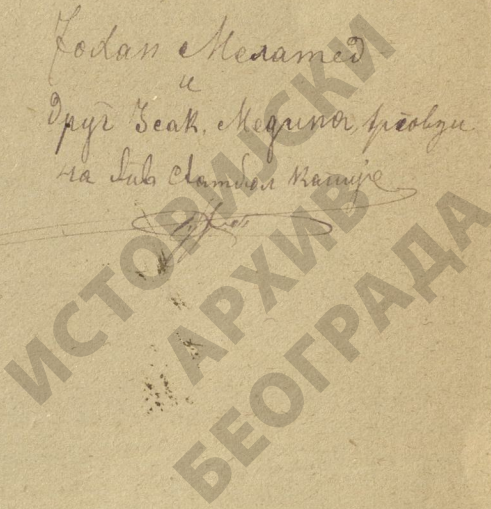 Јохан Меламед
и
Друг Исак. Медина, трговци
на Стамбол Капије
ИСТОРИЈСКИ
АРХИВ
БЕОГРАДА